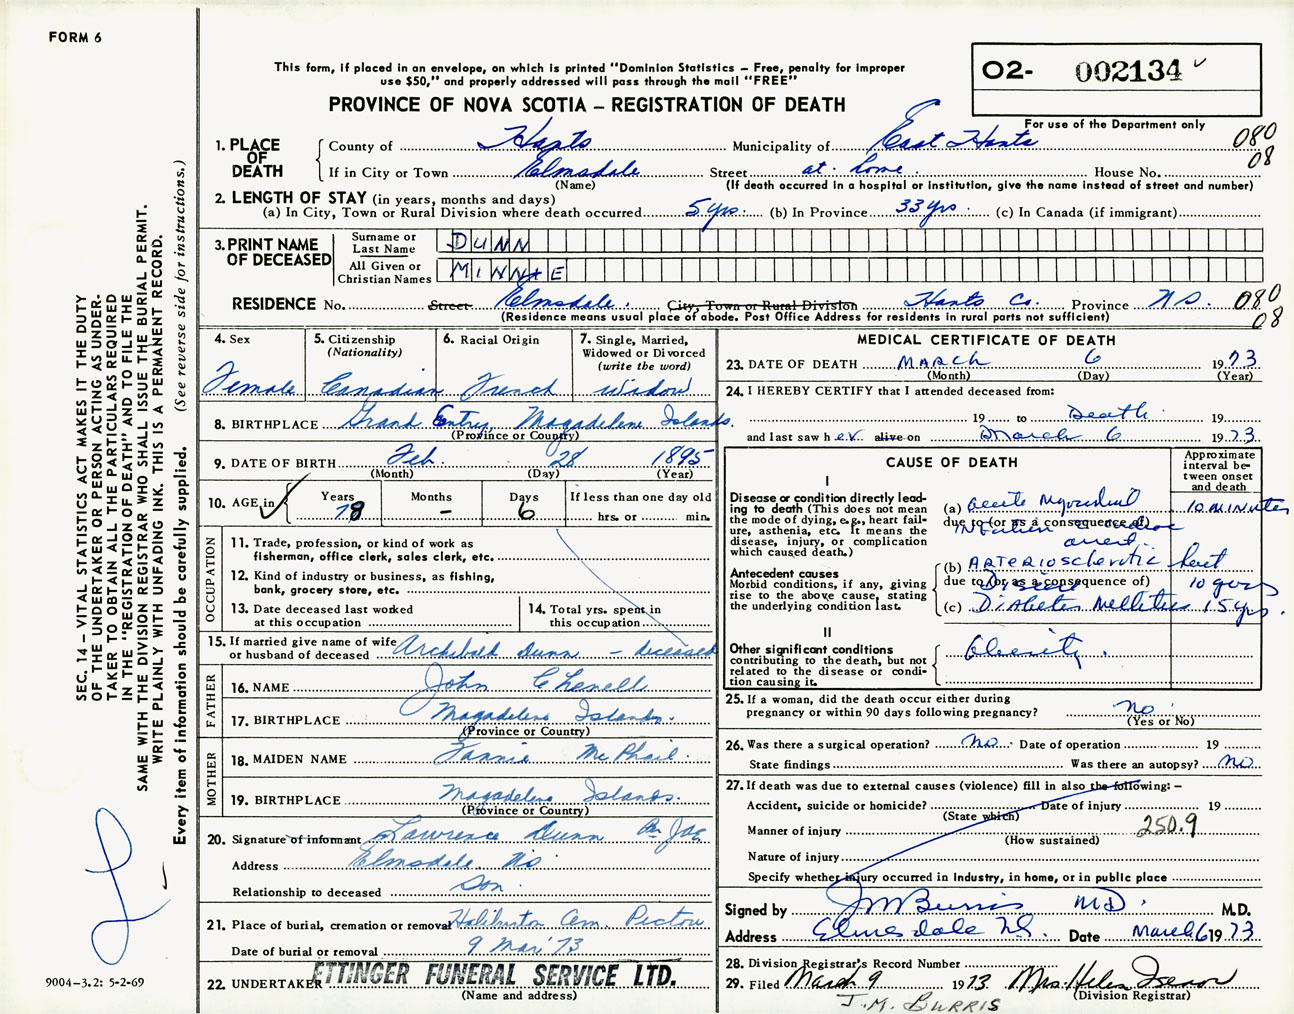 FORM 6
This form, if placed in an envelope, on which is printed "Dominion Statistics – Free, penalty for improper
use $50," and properly addressed will pass through the mail "FREE"
PROVINCE OF NOVA SCOTIA – REGISTRATION OF DEATH
02- 002134
For use of the Department only
080
08
1. PLACE OF DEATH
County of Hants Municipality of East Hants
If in City or Town Elmsdale Street at home House No.
(Name) (If death occurred in a hospital or institution, give the name instead of street and number)
2. LENGTH OF STAY (in years, months and days)
(a) In City, Town or Rural Division where death occurred 5 yrs. (b) In Province 33 yrs. (c) In Canada (if immigrant)
3. PRINT NAME OF DECEASED
Surname or Last Name DUNN
All Given or Christian Names MINNIE
RESIDENCE No. Street Elmsdale. City, Town or Rural Division Hants Co. Province N.S. 080
(Residence means usual place of abode. Post Office Address for residents in rural parts not sufficient) 08
4. Sex Female
5. Citizenship (Nationality) Canadian
6. Racial Origin French
7. Single, Married, Widowed or Divorced (write the word) Widow
8. BIRTHPLACE Grand Entry, Magadelene Islands.
(Province or Country)
9. DATE OF BIRTH Feb. 28 1895
(Month) (Day) (Year)
10. AGE in Years 78 Months – Days 6 If less than one day old
hrs. or min.
OCCUPATION
11. Trade, profession, or kind of work as
fisherman, office clerk, sales clerk, etc.
12. Kind of industry or business, as fishing,
bank, grocery store, etc.
13. Date deceased last worked
at this occupation
14. Total yrs. spent in
this occupation
15. If married give name of wife
or husband of deceased Archibald Dunn – deceased
FATHER
16. NAME John Chenell
17. BIRTHPLACE Magadelene Islands.
(Province or Country)
MOTHER
18. MAIDEN NAME Fannie McPhail.
19. BIRTHPLACE Magadelene Islands.
(Province or Country)
20. Signature of informant Lawrence Dunn
Address Elmsdale N.S.
Relationship to deceased Son.
21. Place of burial, cremation or removal Haliburton Cem. Pictou
Date of burial or removal 9 Mar '73
22. UNDERTAKER ETTINGER FUNERAL SERVICE LTD.
(Name and address)
MEDICAL CERTIFICATE OF DEATH
23. DATE OF DEATH MARCH 6 1973
(Month) (Day) (Year)
24. I HEREBY CERTIFY that I attended deceased from:
19 to Death 19
and last saw her alive on March 6 1973
CAUSE OF DEATH
Approximate interval between onset and death
I
Disease or condition directly leading
to death (This does not mean
the mode of dying, e.g., heart failure,
asthenia, etc. It means the
disease, injury, or complication
which caused death.)
(a) Acute Myocardial 10 minutes
due to (or as a consequence of)
Infarction cardiac
arrest.
Antecedent causes
Morbid conditions, if any, giving
rise to the above cause, stating
the underlying condition last.
(b) ARTERIOSCLEROTIC heart
due to (or as a consequence of)
Disease 10 years
(c) Diabetes Mellitus 15 yrs.
II
Other significant conditions
contributing to the death, but not
related to the disease or condition
causing it.
Obesity.
25. If a woman, did the death occur either during
pregnancy or within 90 days following pregnancy? No
(Yes or No)
26. Was there a surgical operation? No. Date of operation 19
State findings Was there an autopsy? No
27. If death was due to external causes (violence) fill in also the following: –
Accident, suicide or homicide? Date of injury 19
(State which)
Manner of injury 250.9
(How sustained)
Nature of injury
Specify whether injury occurred in industry, in home, or in public place
Signed by J M Burris M.D. M.D.
Address Elmsdale N.S. Date March 6 1973
28. Division Registrar's Record Number
29. Filed March 9 1973 Mrs. Helen
(Division Registrar)
J. M. BURRIS
SEC. 14 – VITAL STATISTICS ACT MAKES IT THE DUTY
OF THE UNDERTAKER OR PERSON ACTING AS UNDERTAKER
TO OBTAIN ALL THE PARTICULARS REQUIRED
IN THE "REGISTRATION OF DEATH" AND TO FILE THE
SAME WITH THE DIVISION REGISTRAR WHO SHALL ISSUE THE BURIAL PERMIT.
WRITE PLAINLY WITH UNFADING INK. THIS IS A PERMANENT RECORD.
Every item of information should be carefully supplied. (See reverse side for instructions.)
9004-3.2: 5-2-69